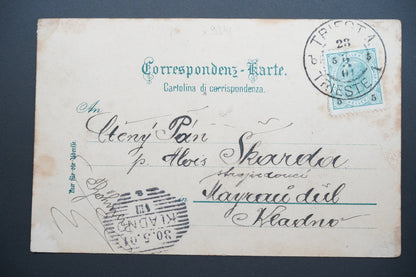 TRIEST 1
23
5
01
TRIESTE 1
5 5
Correspondenz-Karte.
Cartolina di corrispondenza.
An
Ctěný Pán
p. Alois Škarda
strojvedoucí
Mayrau důl
Kladno
Nur für die Adresse
KLADNO
30.5.01
VIII